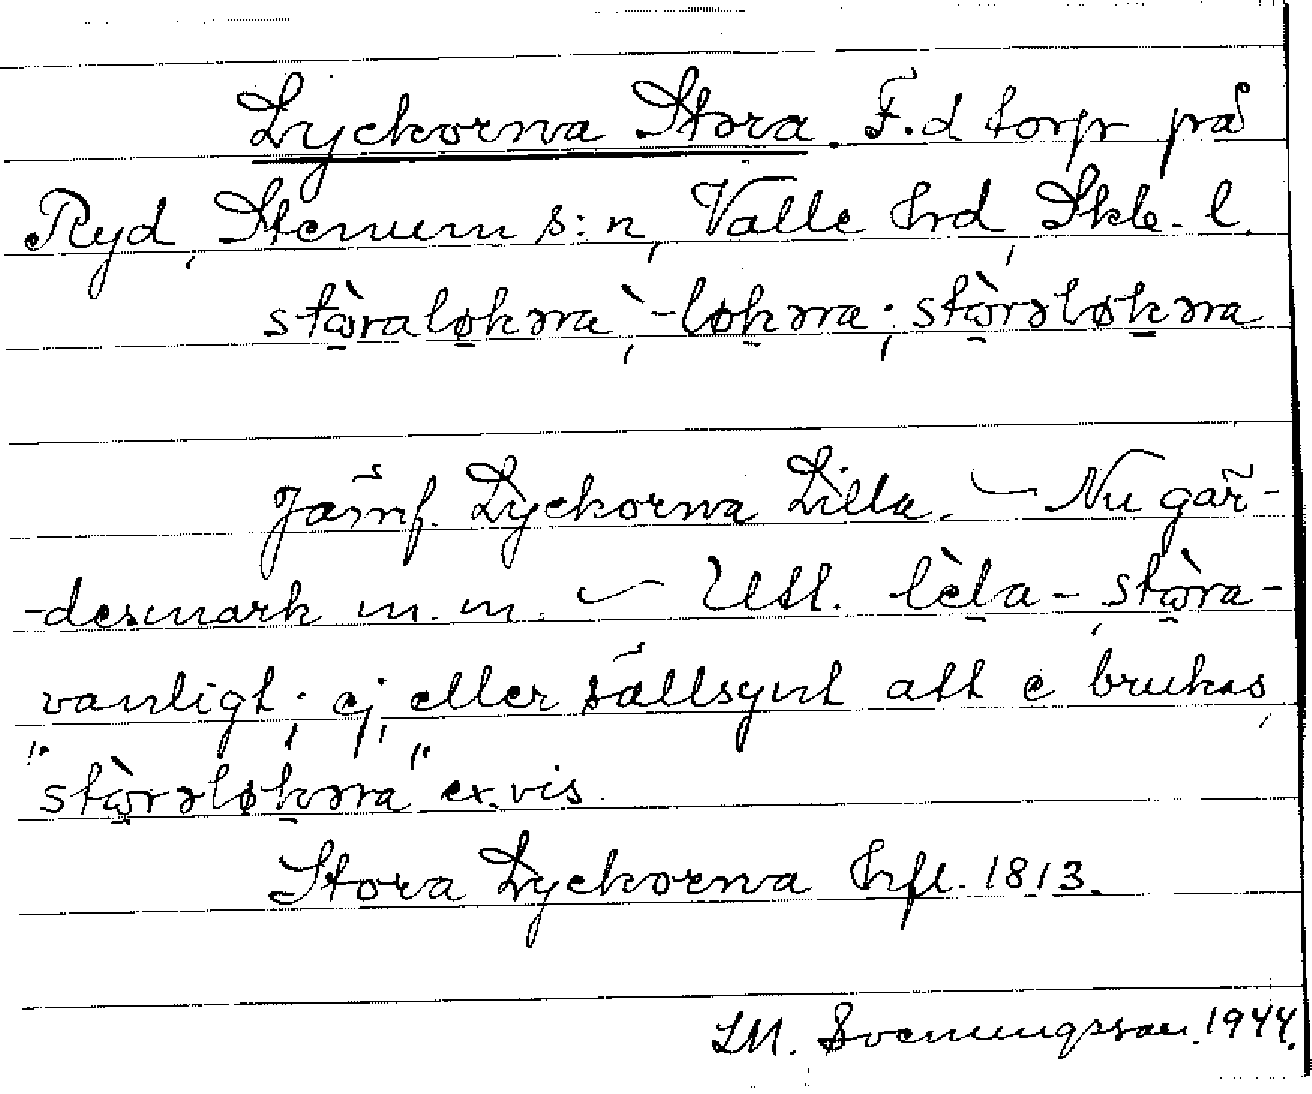 Lyckorna Stora. F.d torp på
Ryd, Stenum s:n, Valle hrd, Skb. l.
stòraløkɔna, -løkɔna; stòrəløkɔna
Jämf. Lyckorna Lilla. – Nu gär-
-desmark m.m. – Utt. lèla-, stòra-
vanligt; ej eller sällsynt att e brukas,
"stòrəløkɔna" ex.vis.
Stora Lyckorna hfl. 1813.
LM. Svenungsson. 1944.